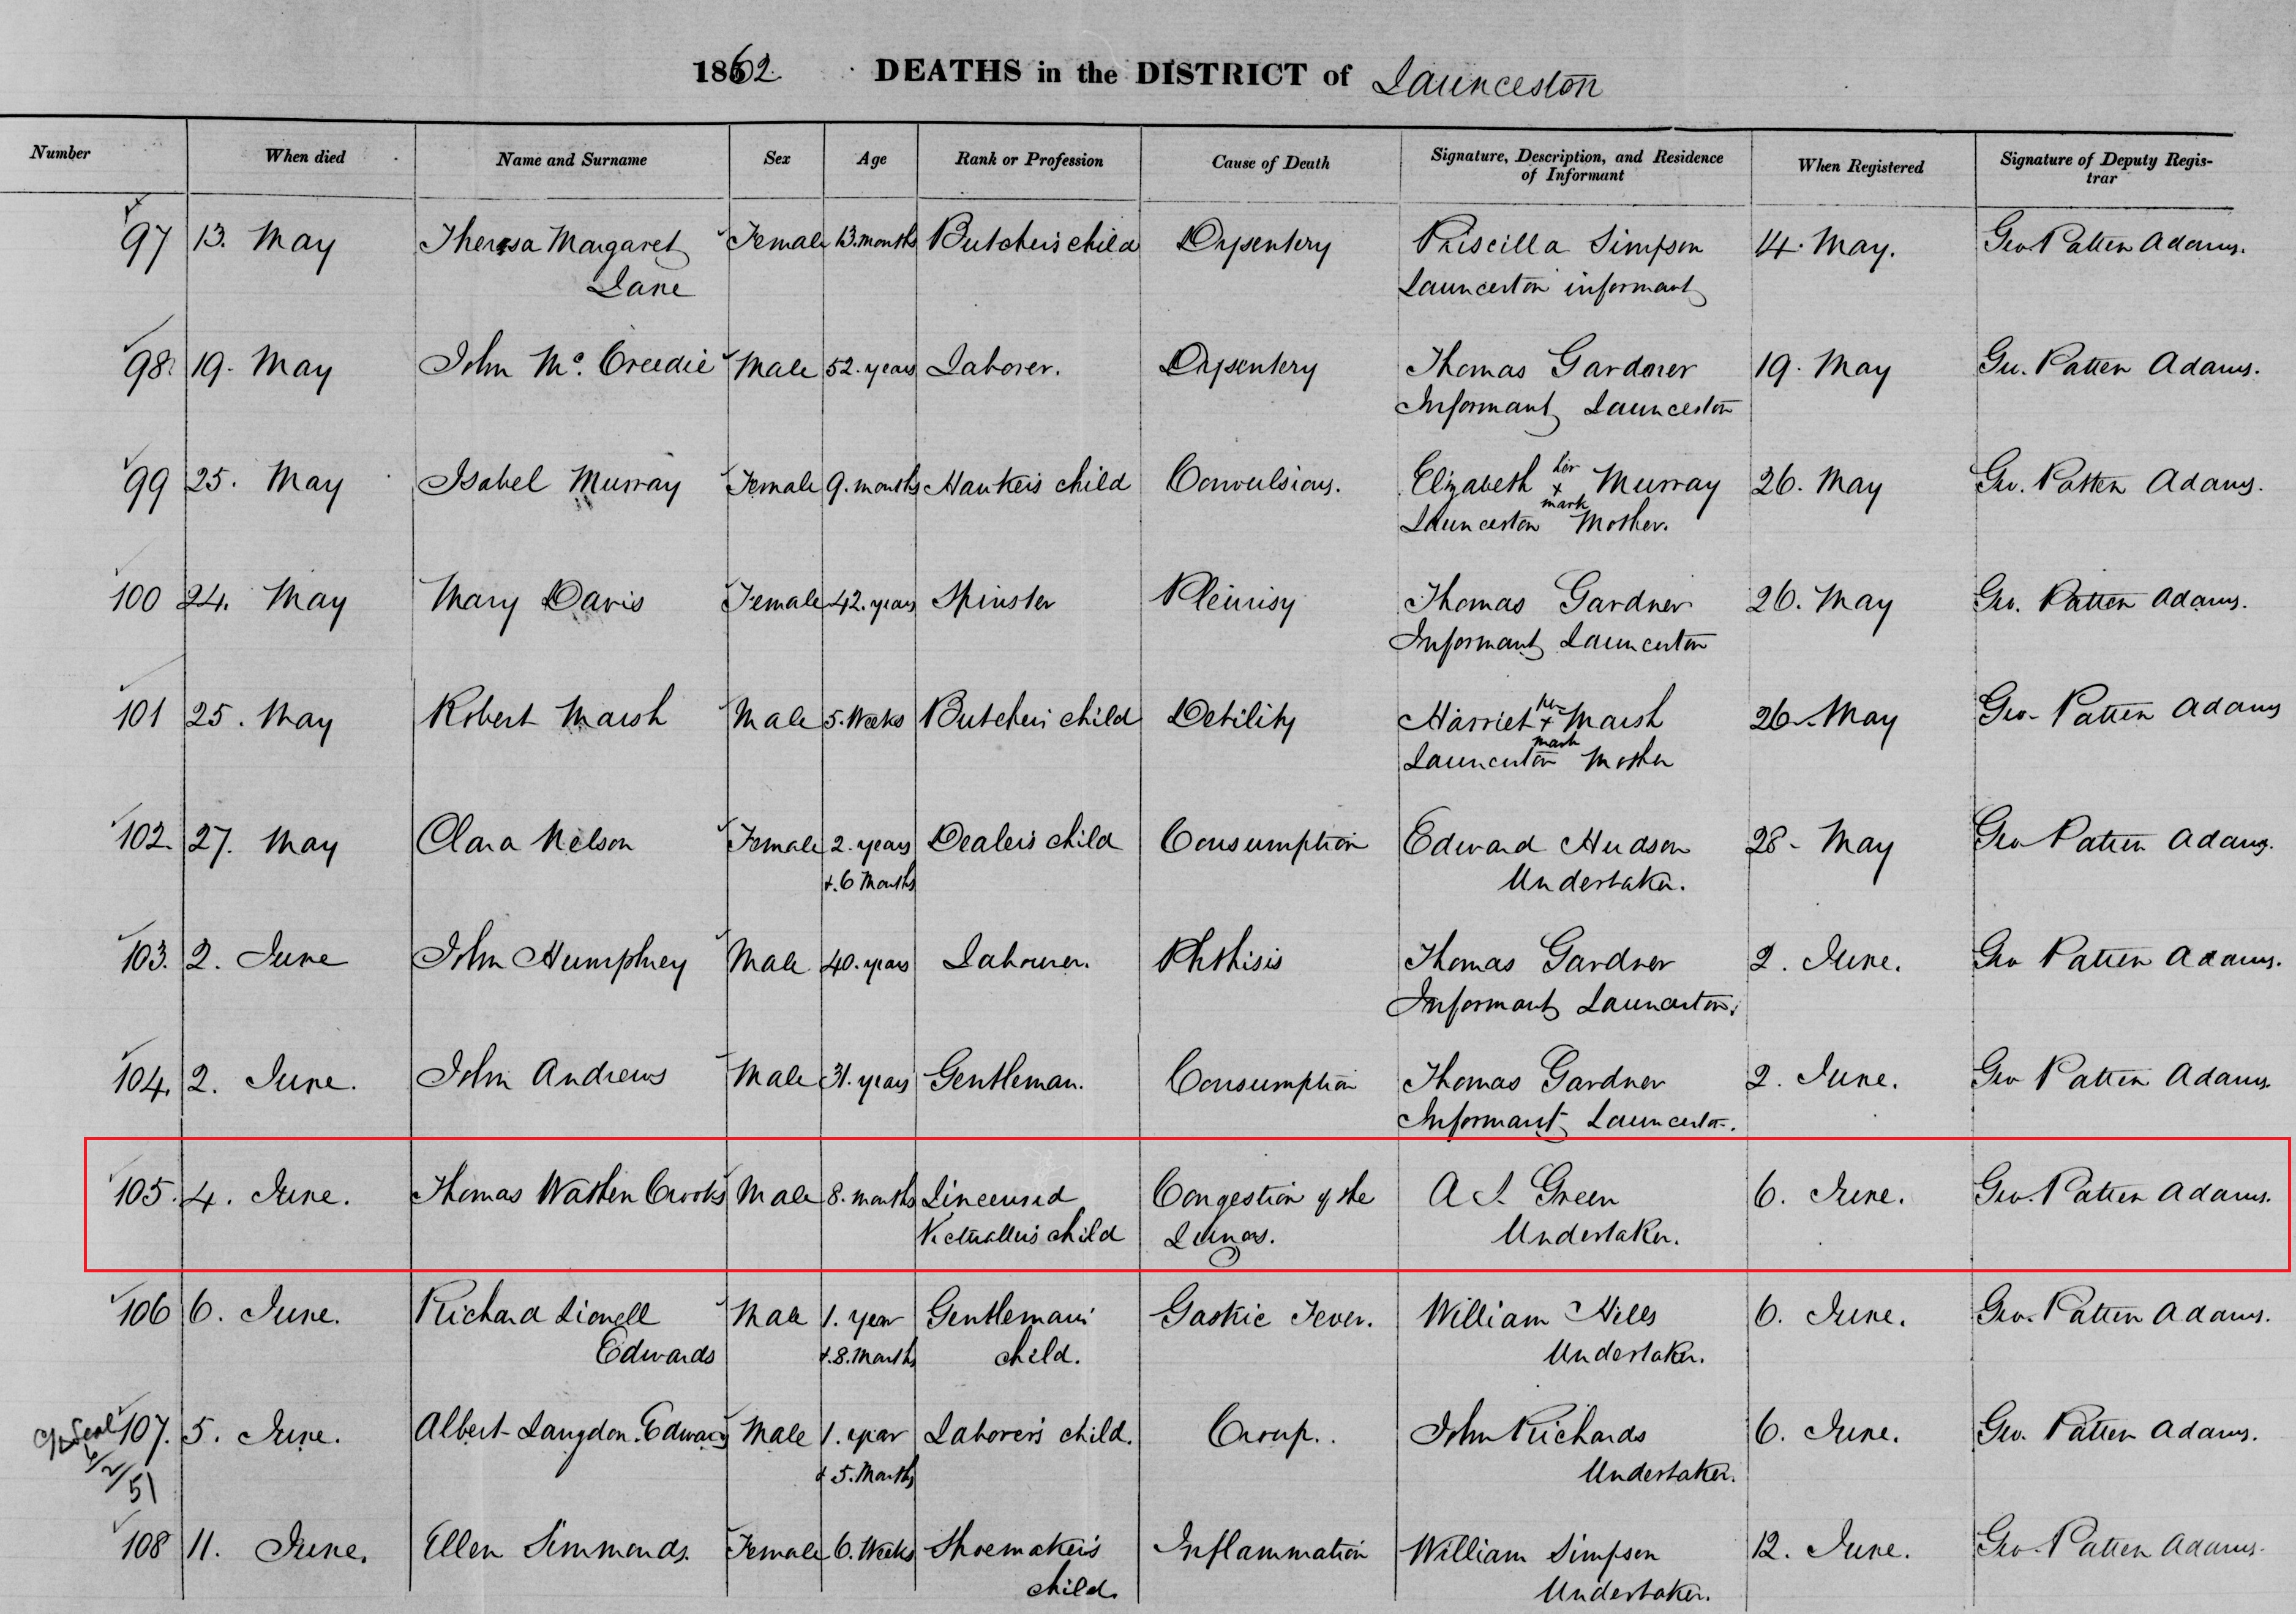 1862 DEATHS in the DISTRICT of Launceston
Number When died Name and Surname Sex Age Rank or Profession Cause of Death Signature, Description, and Residence of Informant When Registered Signature of Deputy Registrar
97 13. May Theresa Margaret Female 13. months Butcher's child Dysentery Priscilla Simpson 14. May. Geo Patten Adams.
Lane Launceston informant
98. 19. May John Mc. Creedie Male 52. years Laborer. Dysentery Thomas Gardner 19. May Geo. Patten Adams.
Informant Launceston
99 25. May Isabel Murray Female 9. months Hawker's child Convulsions. Elizabeth her x mark Murray 26. May Geo. Patten Adams.
Launceston Mother.
100 24. May Mary Davis Female 42. years Spinster Pleurisy Thomas Gardner 26. May Geo. Patten Adams.
Informant Launceston
101 25. May Robert Marsh Male 5. Weeks Butcher's child Debility Harriet her x mark Marsh 26 May Geo. Patten Adams
Launceston Mother
102. 27. May Clara Nelson Female 2. years Dealer's child Consumption Edward Hudson 28 - May Geo Patten Adams.
+. 6 Months Undertaker.
103. 2. June John Humphrey Male 40. years Labourer. Phthisis Thomas Gardner 2. June. Geo Patten Adams.
Informant Launceston.
104. 2. June. John Andrews Male 31. years Gentleman. Consumption Thomas Gardner 2. June. Geo Patten Adams.
Informant Launceston.
105. 4. June. Thomas Wathen Crooks Male 8. months Lincensed Congestion of the A J. Green 6. June. Geo. Patten Adams.
Victualler's child Lungs. Undertaker.
106 6. June. Richard Lionell Male 1. year Gentleman's Gastric Fever. William Hills 6. June. Geo. Patten Adams.
Edwards +. 8. Months child. Undertaker.
107. 5. June. Albert Langdon Edwards Male 1. year Laborer's child. Croup. John Richards 6. June. Geo. Patten Adams.
6/2/51 + 5. Months Undertaker.
108 11. June. Ellen Simmonds. Female 6. Weeks Shoemaker's Inflammation William Simpson 12. June. Geo. Patten Adams.
child. Undertaker.